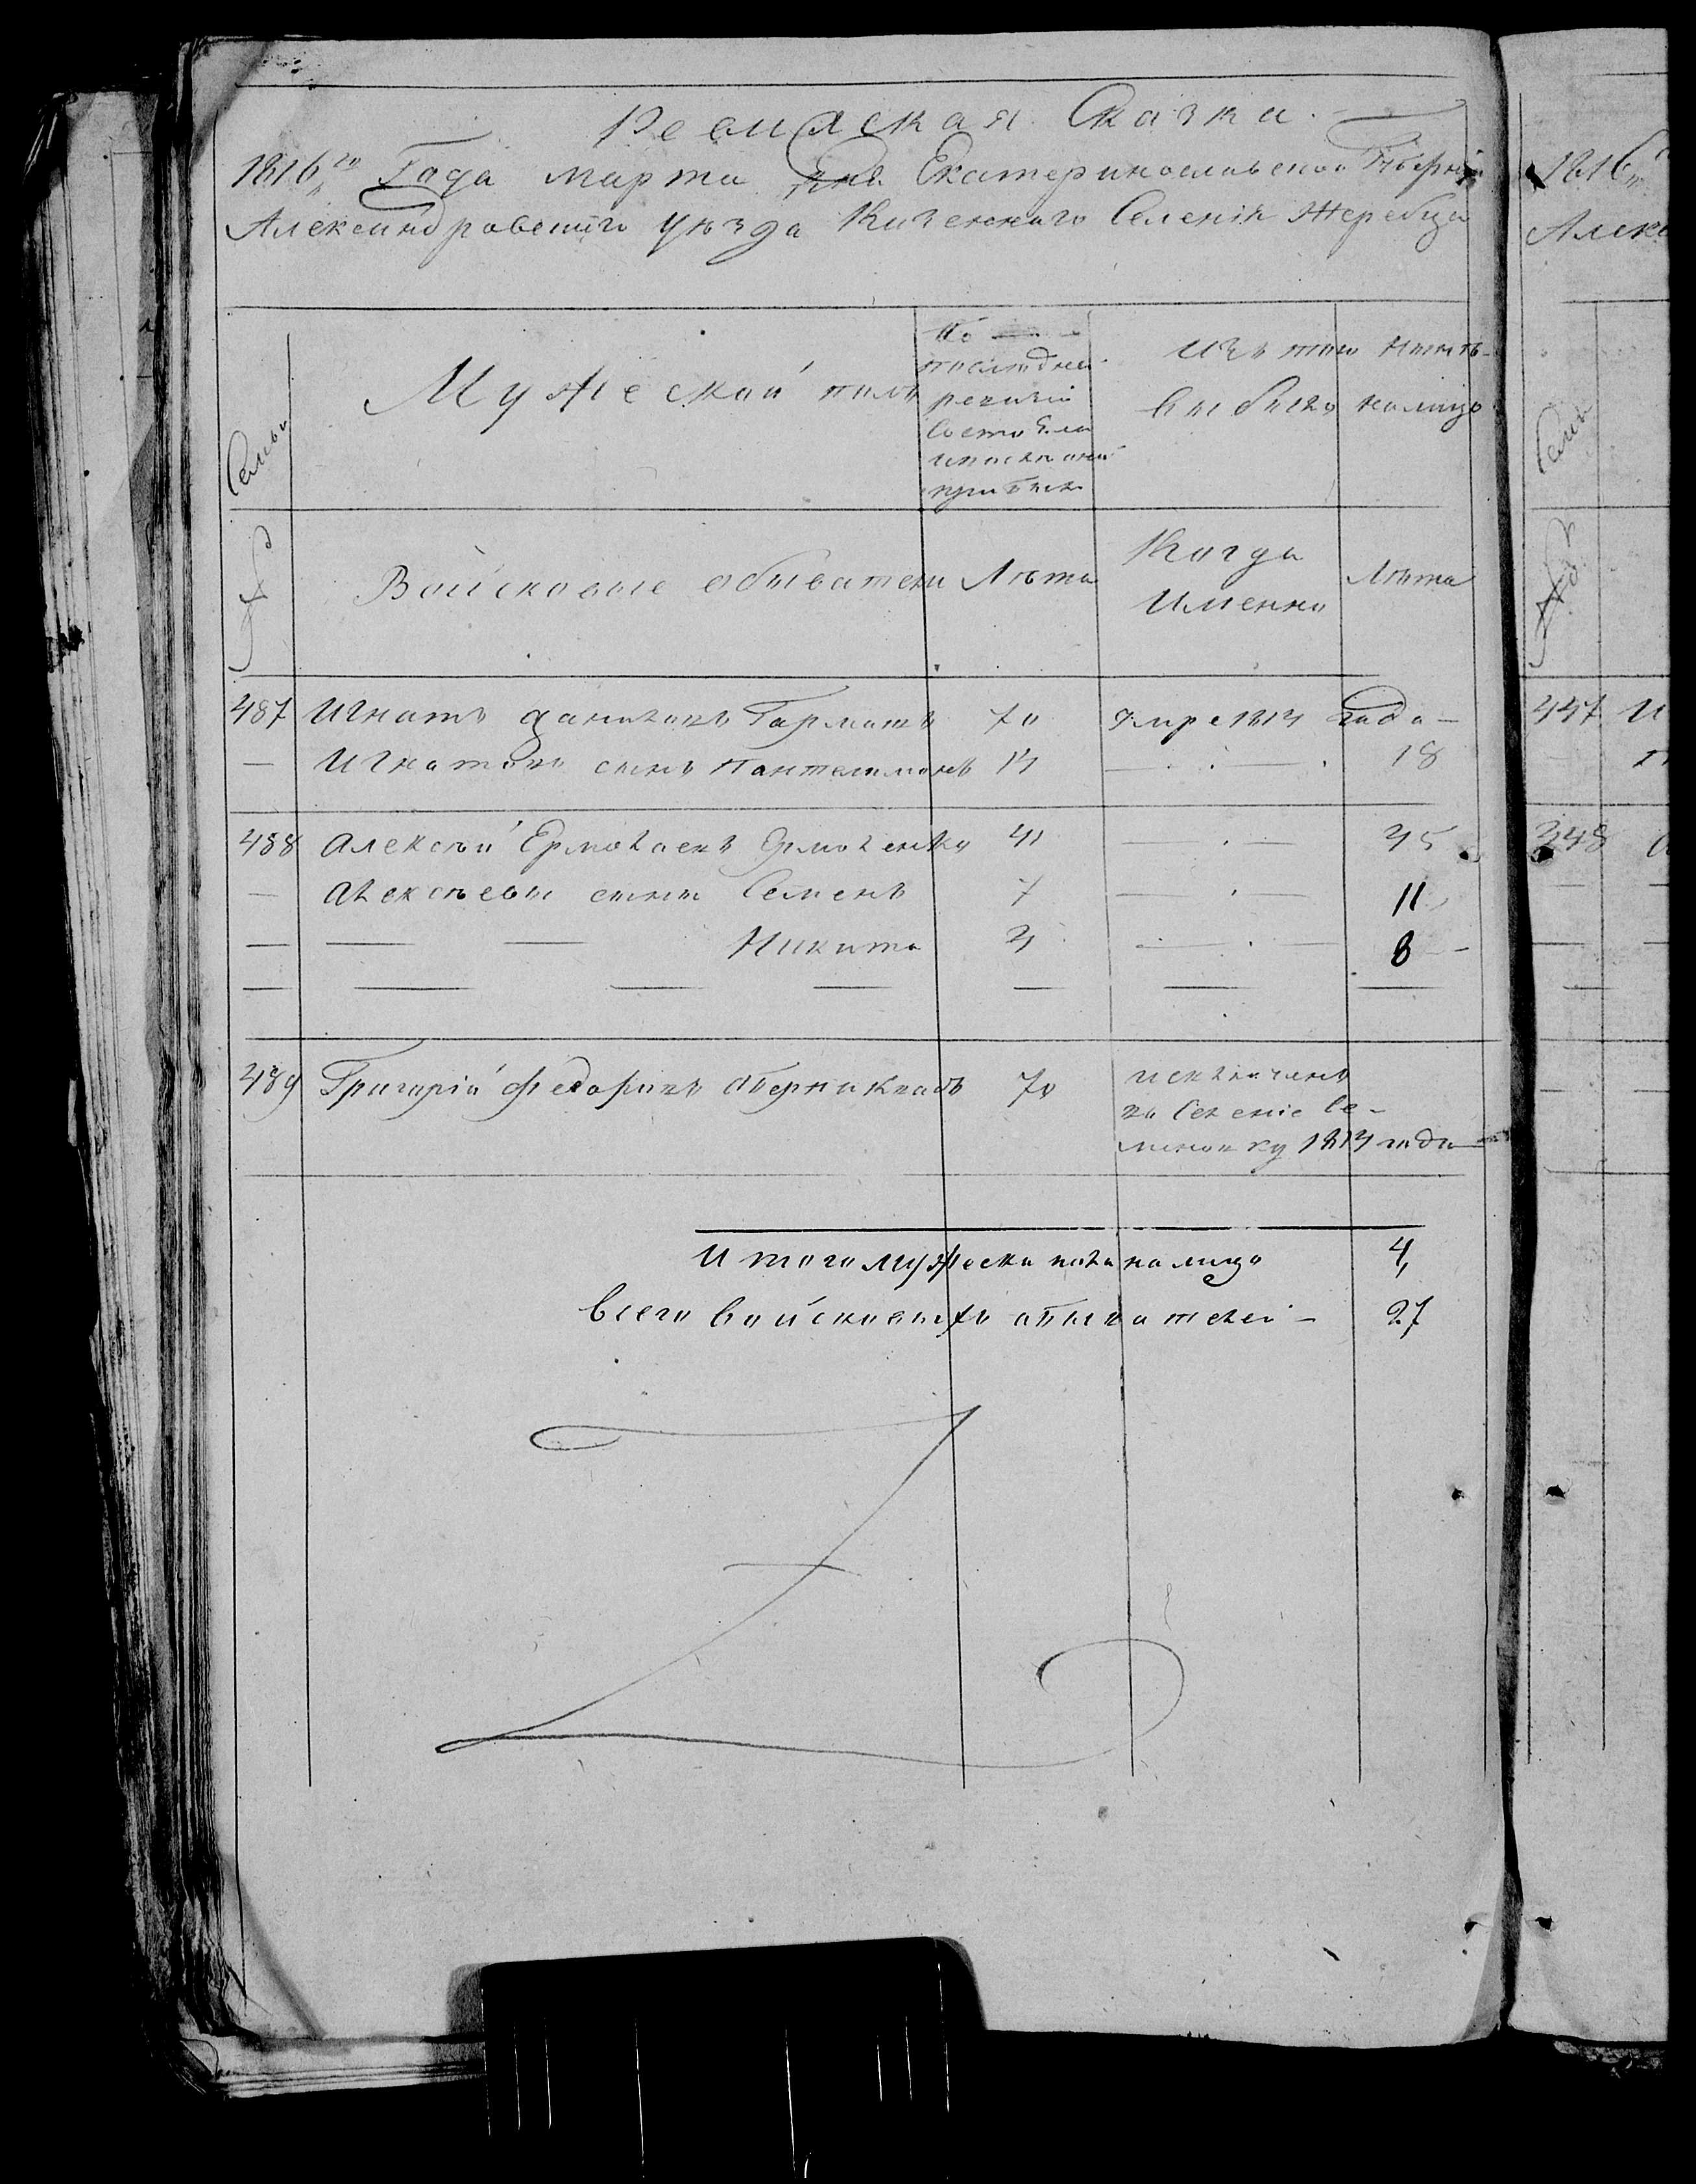 Ревижская Сказка.
1816го Года марта дня Екатеринославской Губерніи
Александровского уѣзда Казенного Селенія Жеребца
Семьи
Мужеской полъ
По
последней
ревизіи
состояло
и после оной
прибыло
Изъ того
выбыло
Ныне
налицо
№
Войсковые обыватели
Лѣта
Когда
Именно
Лѣта
487 Игнатъ Даниловъ Гарматъ 70 умре 1814 года —
— Игнатовъ сынъ Пантелимонъ 14 — . — . 18
488 Алексѣй Ермолаевъ Ермоленко 41 — . — 45
— Алексѣевы сыны Семенъ 7 — . — 11
— — — Никита 4 — . — 8 —
— — — — — — —
489 Григорій Федоровъ 70 исключенъ
въ Селеніе Се-
меновку 1814 года
Итого мужеска пола налицо 4,
Всего войсковыхъ обывателей — 27
1816
Алекс
Семьи
№
447 И
348 а